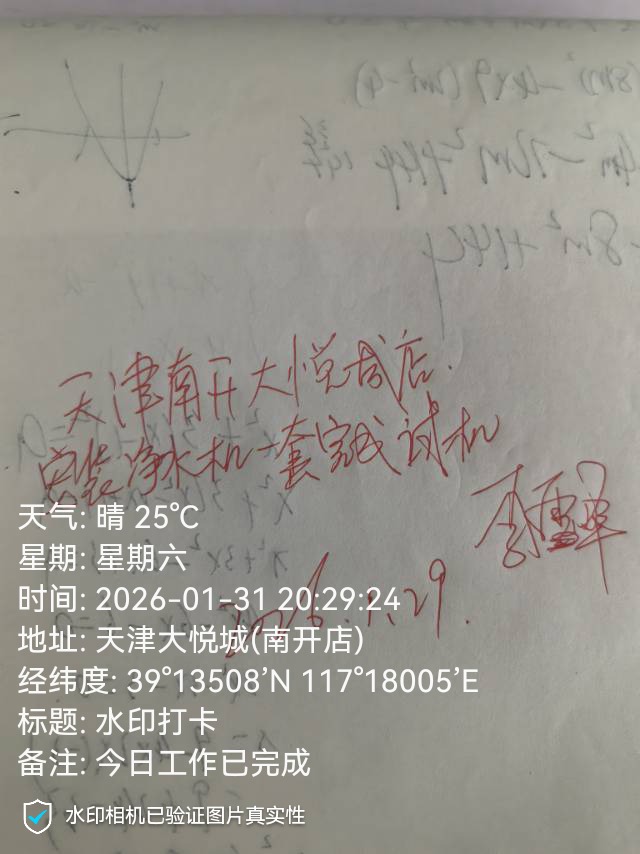 (8m)²-4×9(m²-4)
4m²-72m²+144
-8m²+144
天津南开大悦城店.
安装净水机一套完成试机
李雪
2026.1.29.
天气: 晴 25℃
星期: 星期六
时间: 2026-01-31 20:29:24
地址: 天津大悦城(南开店)
经纬度: 39°13508’N 117°18005’E
标题: 水印打卡
备注: 今日工作已完成
水印相机已验证图片真实性